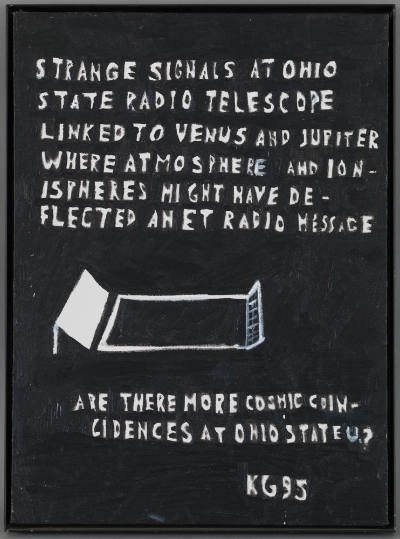 STRANGE SIGNALS AT OHIO
STATE RADIO TELESCOPE
LINKED TO VENUS AND JUPITER
WHERE ATMOSPHERE AND ION-
ISPHERES MIGHT HAVE DE-
FLECTED AN ET RADIO MESSAGE
ARE THERE MORE COSMIC COIN-
CIDENCES AT OHIO STATE U?
KG95